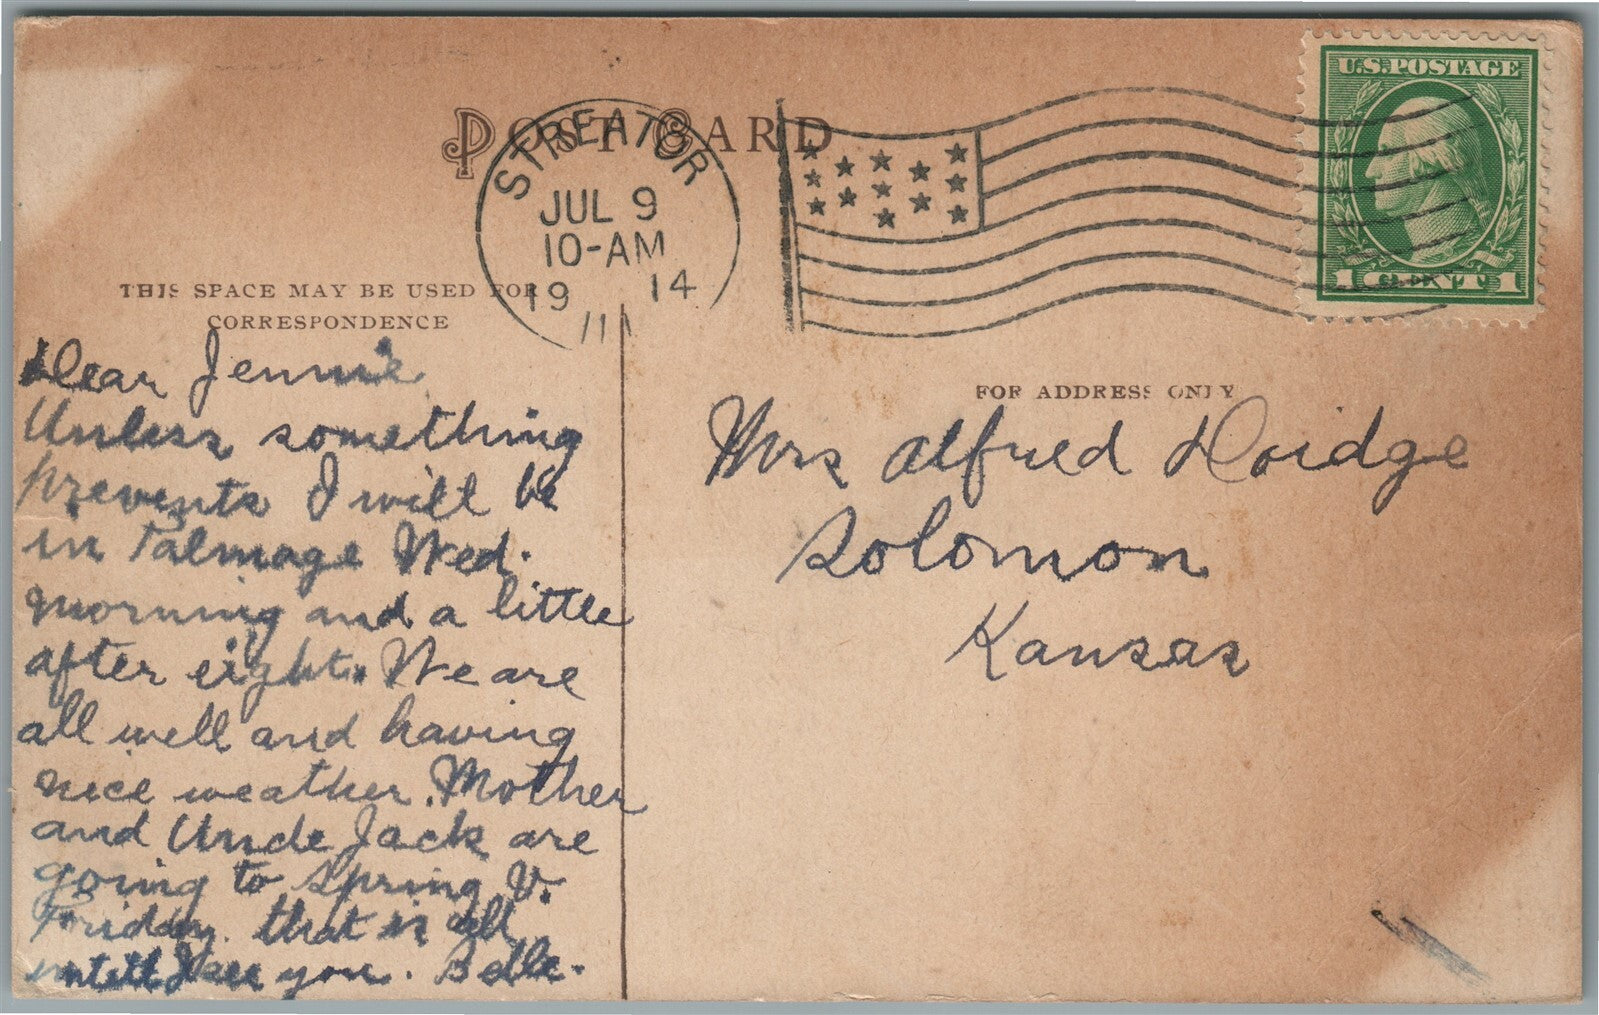 POST CARD
STREATOR
JUL 9
10-AM
19 14
U.S. POSTAGE
1 CENT 1
THIS SPACE MAY BE USED FOR
CORRESPONDENCE
FOR ADDRESS ONLY
Dear Jennie
Unless something
prevents I will be
in Talmage Wed.
morning and a little
after eight. We are
all well and having
nice weather. Mother
and Uncle Jack are
going to Spring V.
Friday. that is all
untill I see you. Belle.
Mrs Alfred Doidge
Solomon
Kansas